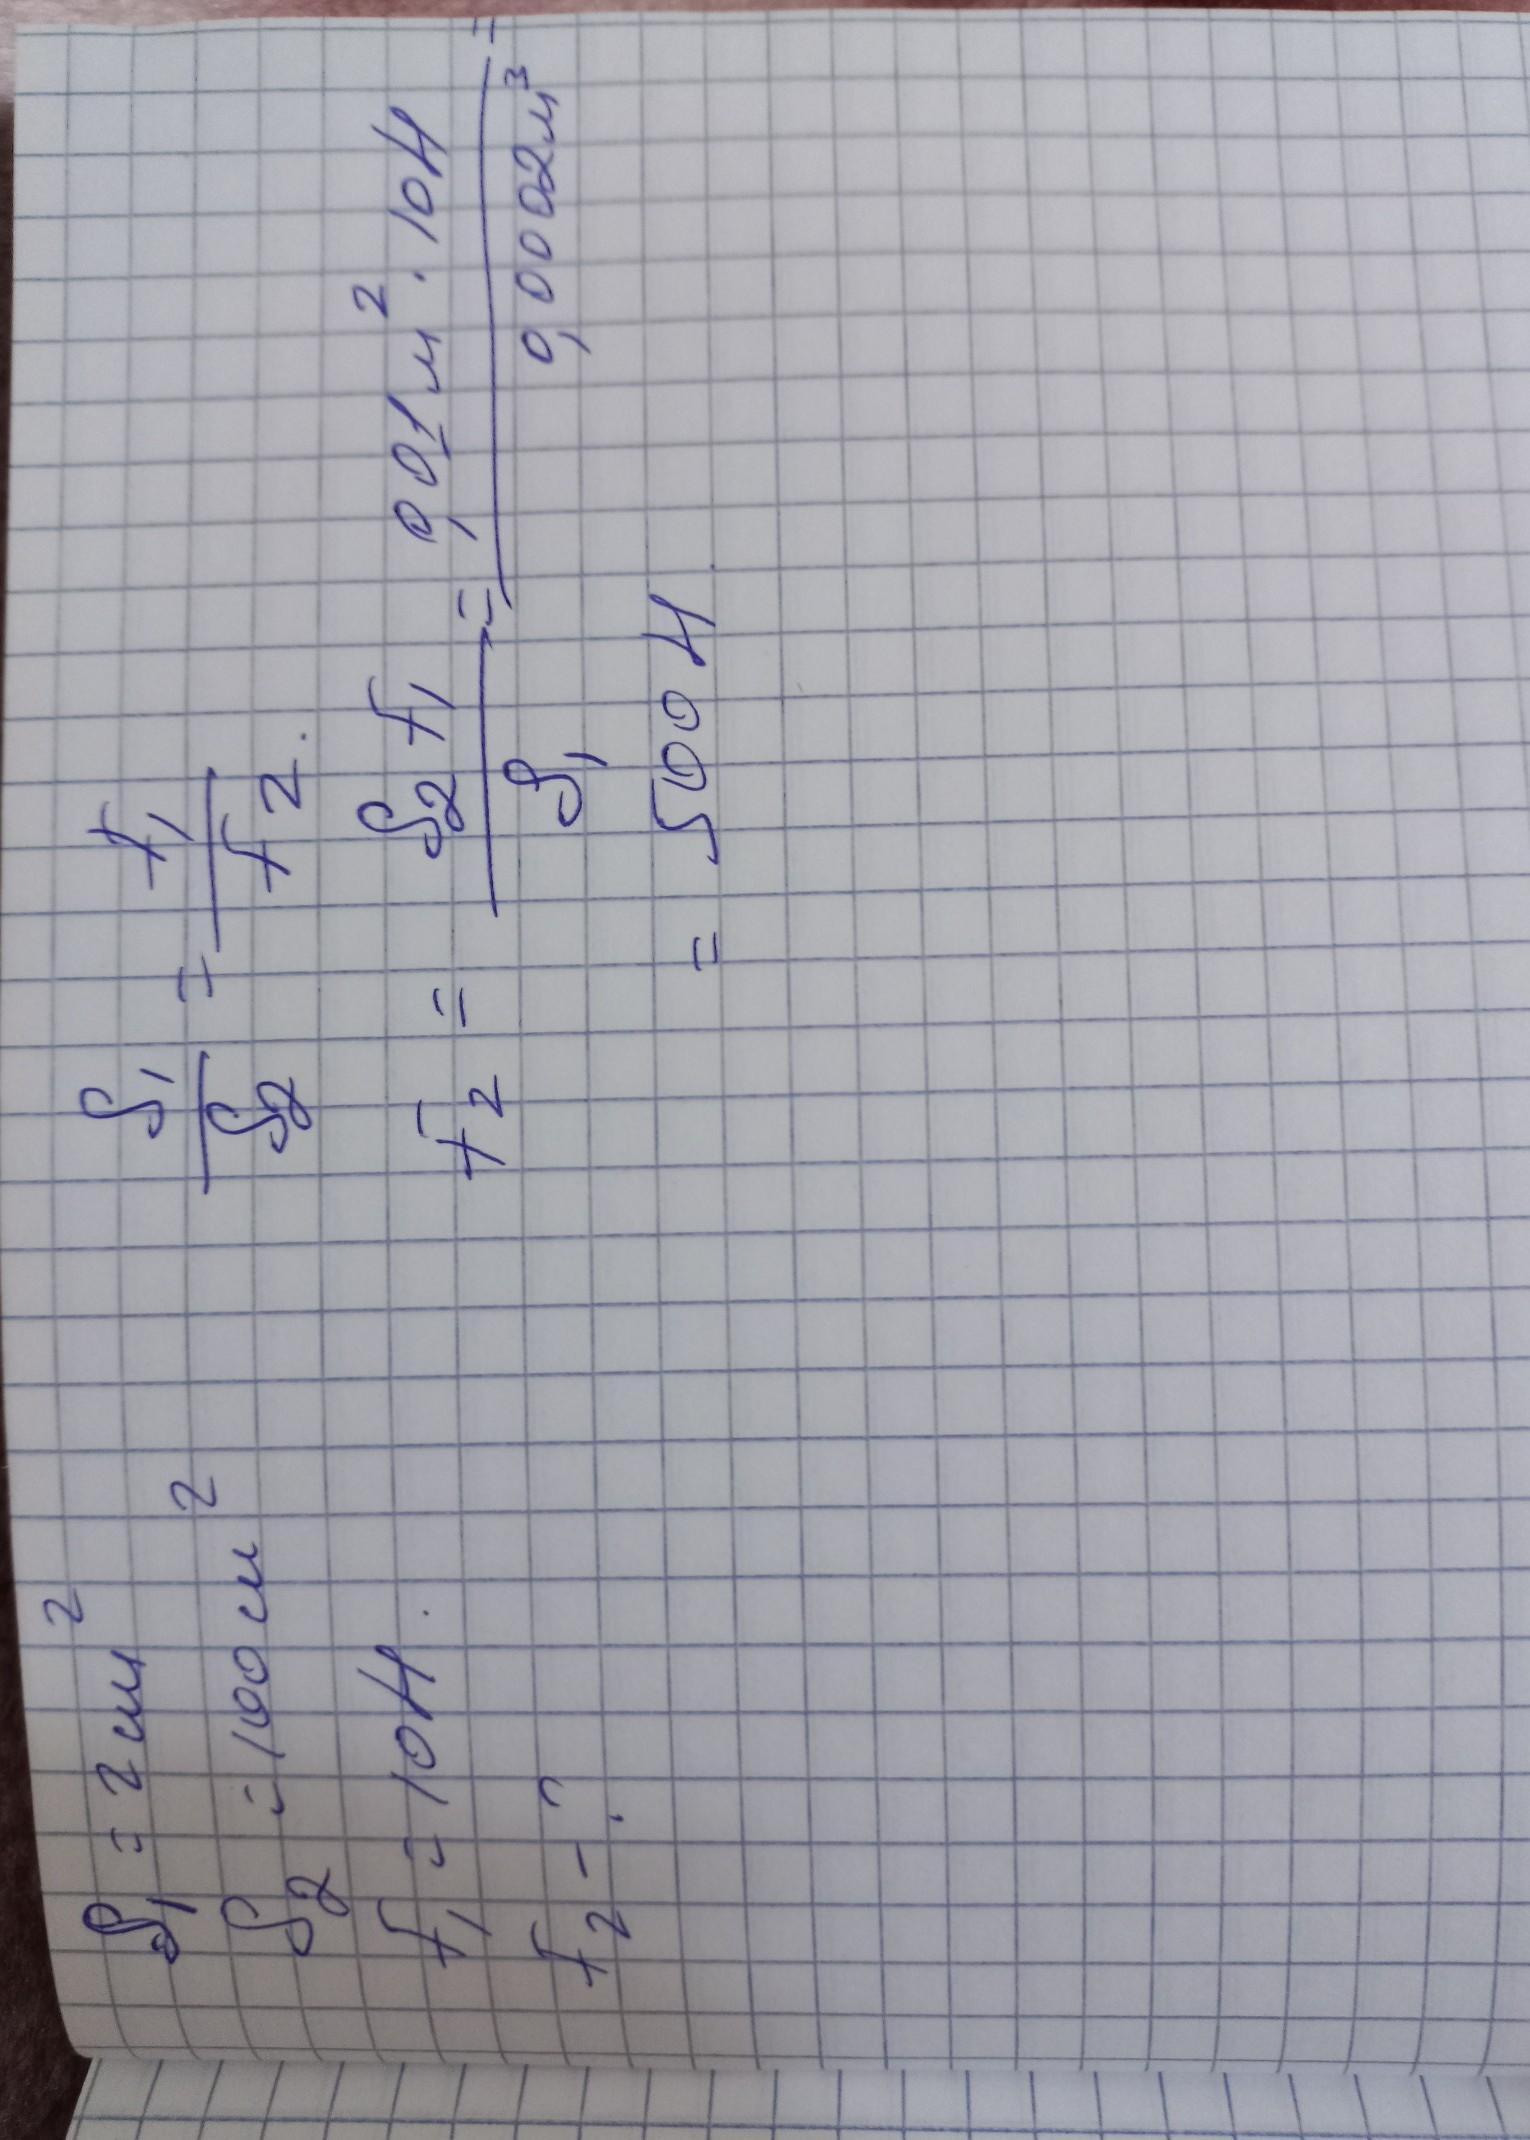 S₁ = 2 см²
S₂ = 100 см²
F₁ = 10 Н.
F₂ - ?
S₁/S₂ = F₁/F₂.
F₂ = S₂F₁/S₁ = 0,01 м² · 10 Н/0,0002 м³ =
= 500 Н